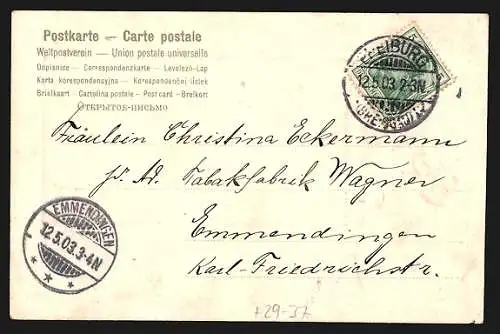 Postkarte — Carte postale
Weltpostverein — Union postale universelle
Dopisnice — Correspondenzkarte — Levelező-Lap
Karta korespondencyjna — Korespondenční lístek
Briefkaart — Cartolina postale — Post card — Brefkort
Открытое письмо
FREIBURG
12.5.03.2-3N
Fräulein Christina Eckermann
pr. Ad. Tabakfabrik Wagner
Emmendingen
Karl-Friedrichstr.
EMMENDINGEN
12.5.03.3-4N
+29-37